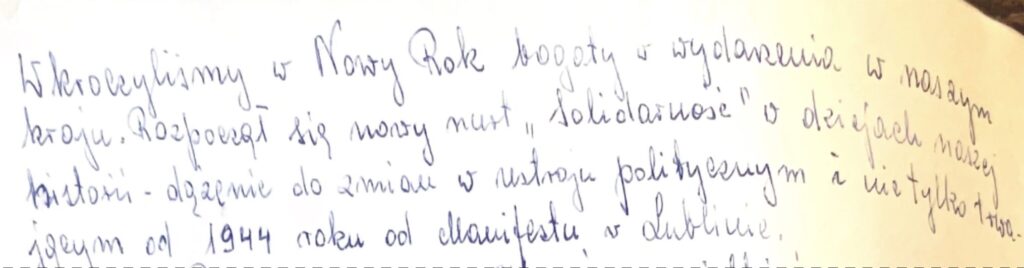 Wkroczyliśmy w Nowy Rok bogaty w wydarzenia w naszym
kraju. Rozpoczął się nowy nurt „Solidarność" w dziejach naszej
historii - dążenie do zmian w ustroju politycznym i nie tylko trwa-
jącym od 1944 roku od Manifestu w Lublinie.